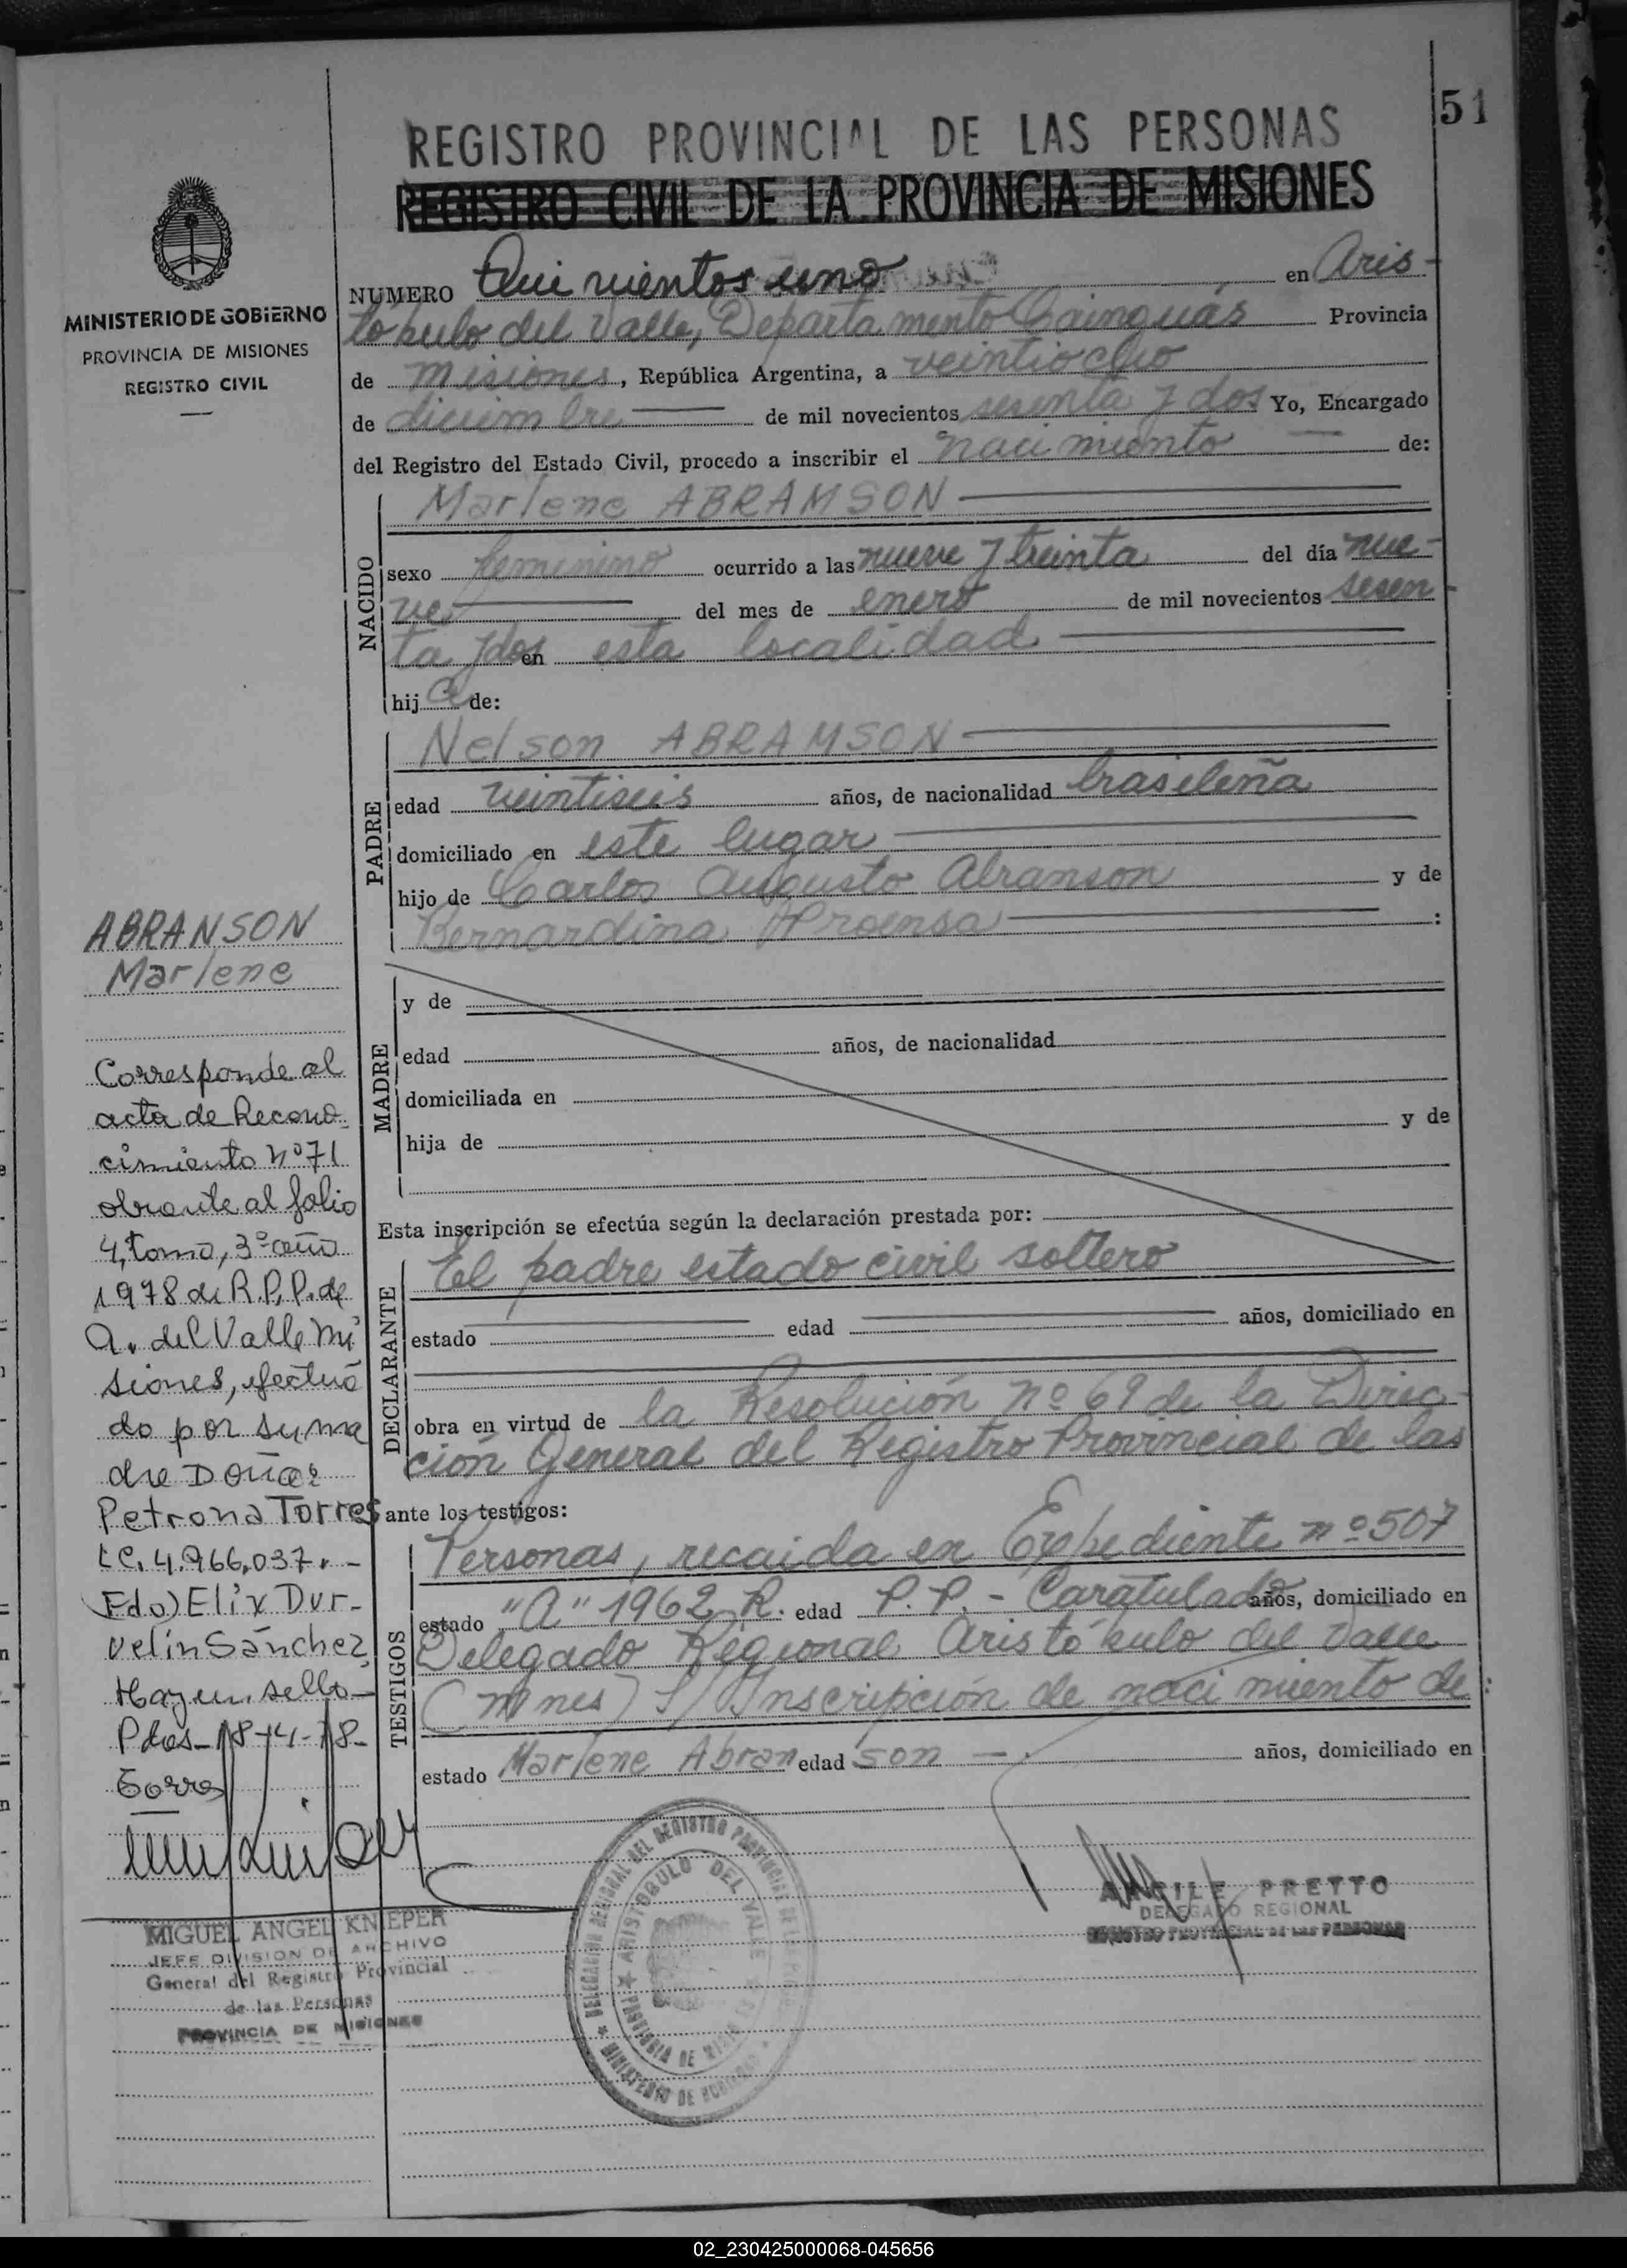 51
REGISTRO PROVINCIAL DE LAS PERSONAS
REGISTRO CIVIL DE LA PROVINCIA DE MISIONES
MINISTERIO DE GOBIERNO
PROVINCIA DE MISIONES
REGISTRO CIVIL
NUMERO Quinientos uno en Aris-
tóbulo del Valle, Departamento Cainguás Provincia
de Misiones, República Argentina, a veintiocho
de diciembre de mil novecientos sesenta y dos Yo, Encargado
del Registro del Estado Civil, procedo a inscribir el nacimiento de:
NACIDO
Marlene ABRAMSON
sexo femenino ocurrido a las nueve y treinta del día nue-
ve del mes de enero de mil novecientos sesen-
ta y dos en esta localidad
hija de:
PADRE
Nelson ABRAMSON
edad veintiseis años, de nacionalidad brasileña
domiciliado en este lugar
hijo de Carlos Augusto Abranson y de
Bernardina Proensa :
MADRE
y de
edad años, de nacionalidad
domiciliada en
hija de y de
Esta inscripción se efectúa según la declaración prestada por:
DECLARANTE
El padre estado civil soltero
estado edad años, domiciliado en
obra en virtud de la Resolución nº 69 de la Direc-
ción General del Registro Provincial de las
ante los testigos:
TESTIGOS
Personas, recaida en Expediente nº 507
estado "A" 1962 R. edad P.P. - Caratulado años, domiciliado en
Delegado Regional Aristóbulo del Valle
(Mnes) S/ Inscripción de nacimiento de :
estado Marlene Abran edad son años, domiciliado en
ABRANSON
Marlene
Corresponde al
acta de Recono-
cimiento Nº 71
obrante al folio
4, tomo, 3º año
1978 de R.P.P. de
A. del Valle Mi
siones, efectua
do por su ma
dre Doña:
Petrona Torres
LC. 4.966.037.-
Fdo) Elix Dur-
velin Sánchez
Hay un sello-
Pdas- 18-14-78-
Torres
MIGUEL ANGEL KNIEPER
JEFE DIVISION DE ARCHIVO
General del Registro Provincial
de las Personas
PROVINCIA DE MISIONES
DELEGACION REGIONAL DEL REGISTRO PROVINCIAL DE LAS
ARISTOBULO DEL VALLE
PROVINCIA DE MISIONES
MINISTERIO DE GOBIERNO
PRETTO
DELEGADO REGIONAL
REGISTRO PROVINCIAL DE LAS PERSONAS
02_230425000068-045656